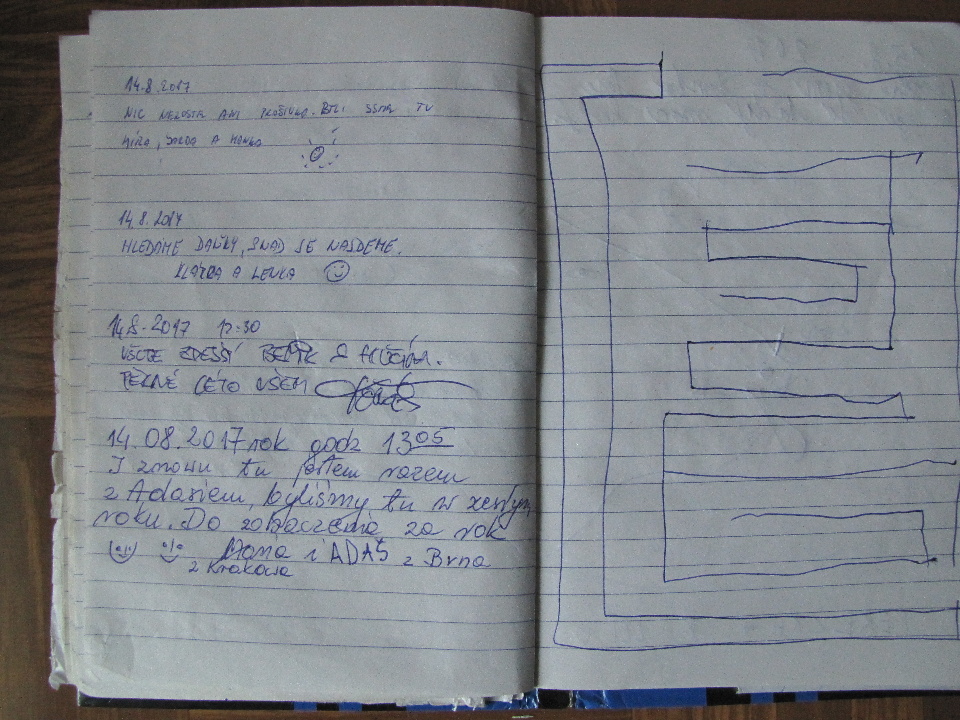 14.8.2017
NIC NEROSTE ANI . BYLI JSME TU
MÍRA, JARDA A HANKA
14.8.2017
HLEDÁME DALŠÍ, SNAD SE NAJDEME.
KLÁRKA A LENKA
14.8.2017 12:30
ZDESŠÍ A
PĚKNÉ LÉTO VŠEM
14.08.2017 rok godz 13 05
I znowu tu jestem razem
z Adasiem, byliśmy tu w zeszłym
roku. Do zobaczenia za rok
i ADAŚ z Brna
z Krakowa